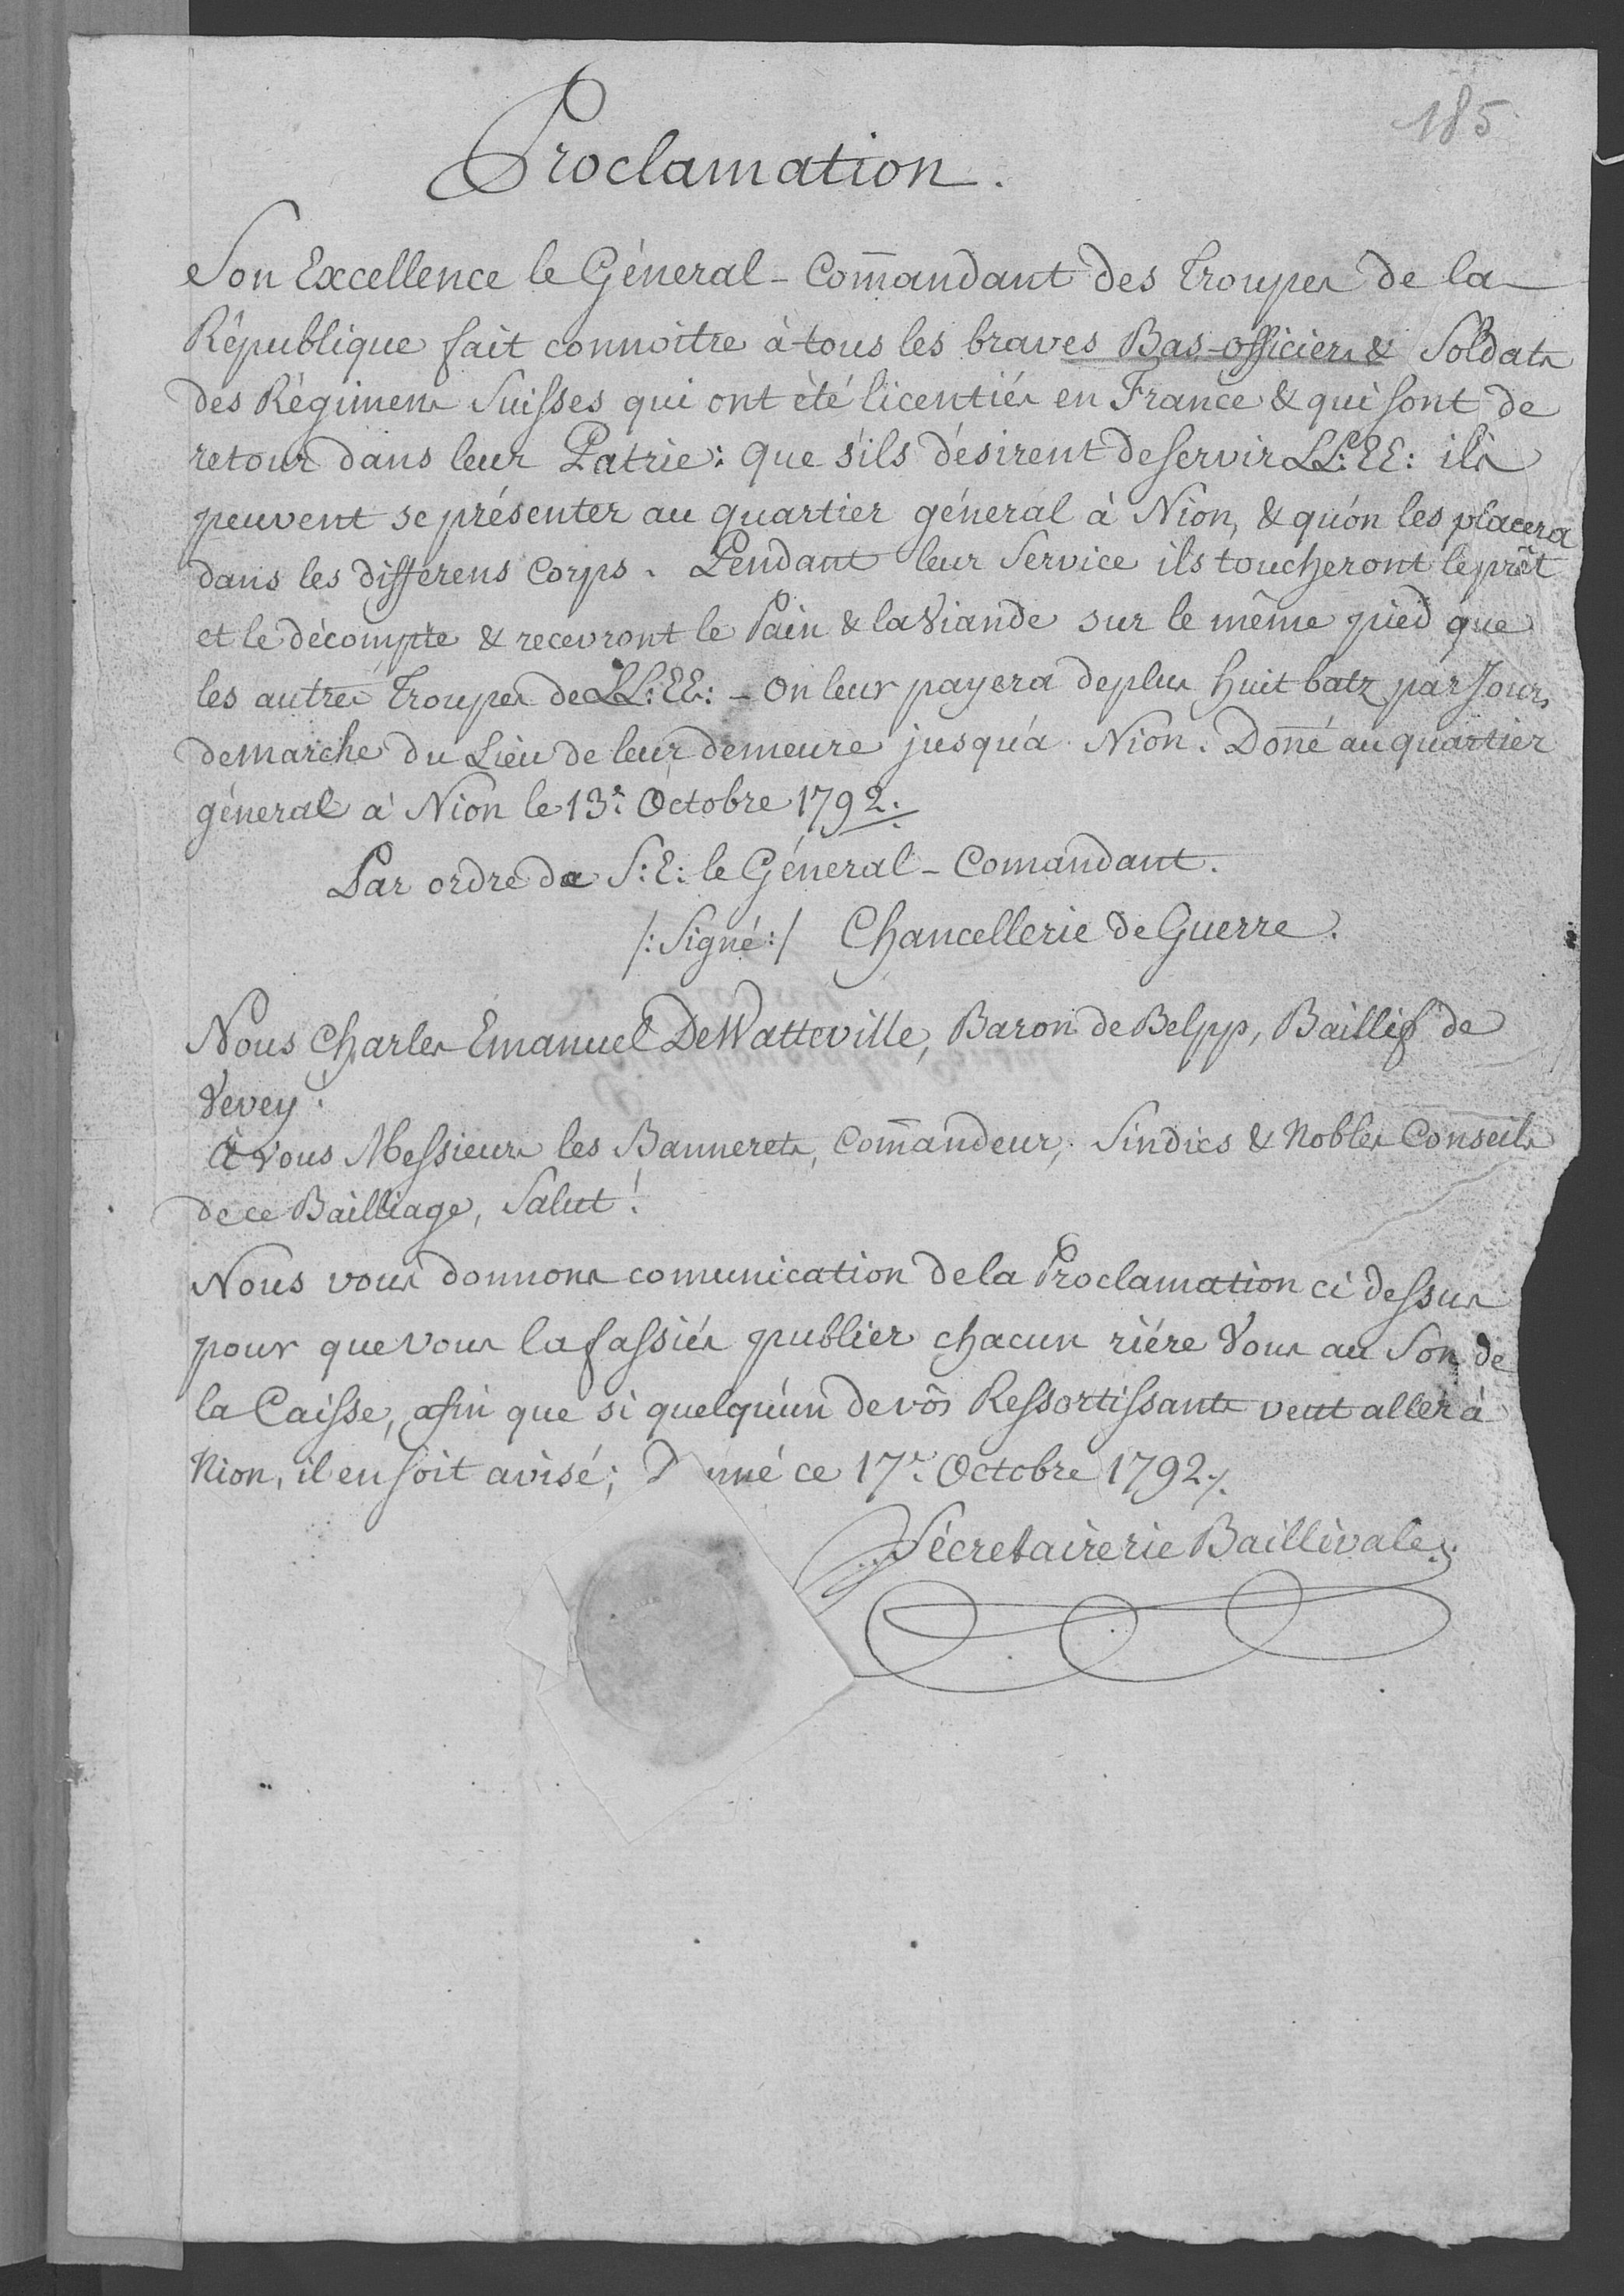 185
Proclamation.
Son Excellence le Géneral-Com̄andant des Troupes de la
République fait connoitre à tous les braves Bas-officiers & Soldats
des Régimens Suisses qui ont été licentiés en France & qui sont de
retour dans leur Patrie: que s'ils désirent de servir LL:EE: ils
peuvent se présenter au quartier géneral à Nion, & qu'on les placera
dans les différens Corps. Pendant leur Service ils toucheront le prêt
et le décompte & recevront le Pain & la Viande sur le même pied que
les autres Troupes de LL:EE: - On leur payera de plus huit batz par Jour,
de marche du Lieu de leur demeure jusqu'à Nion. Don̄é au quartier
géneral à Nion le 13e: Octobre 1792.
Par ordre de S:E: le Géneral-Comandant.
/:Signé:/ Chancellerie de Guerre.
Nous Charles Emanuel De Watteville, Baron de Belpp, Baillif de
Vevey:
à vous Messieurs les Bannerets, Com̄andeur, Sindics & Nobles Conseils
de ce Bailliage, Salut!
Nous vous donnons comunication de la Proclamation ci dessus
pour que vous la fassiés publier chacun riére Vous au Son de
la Caisse, afin que si quelqu'un de vôs Ressortissants veut aller à
Nion, il en soit avisé; D nné ce 17e: Octobre 1792.
Sécretairerie Baillivale.